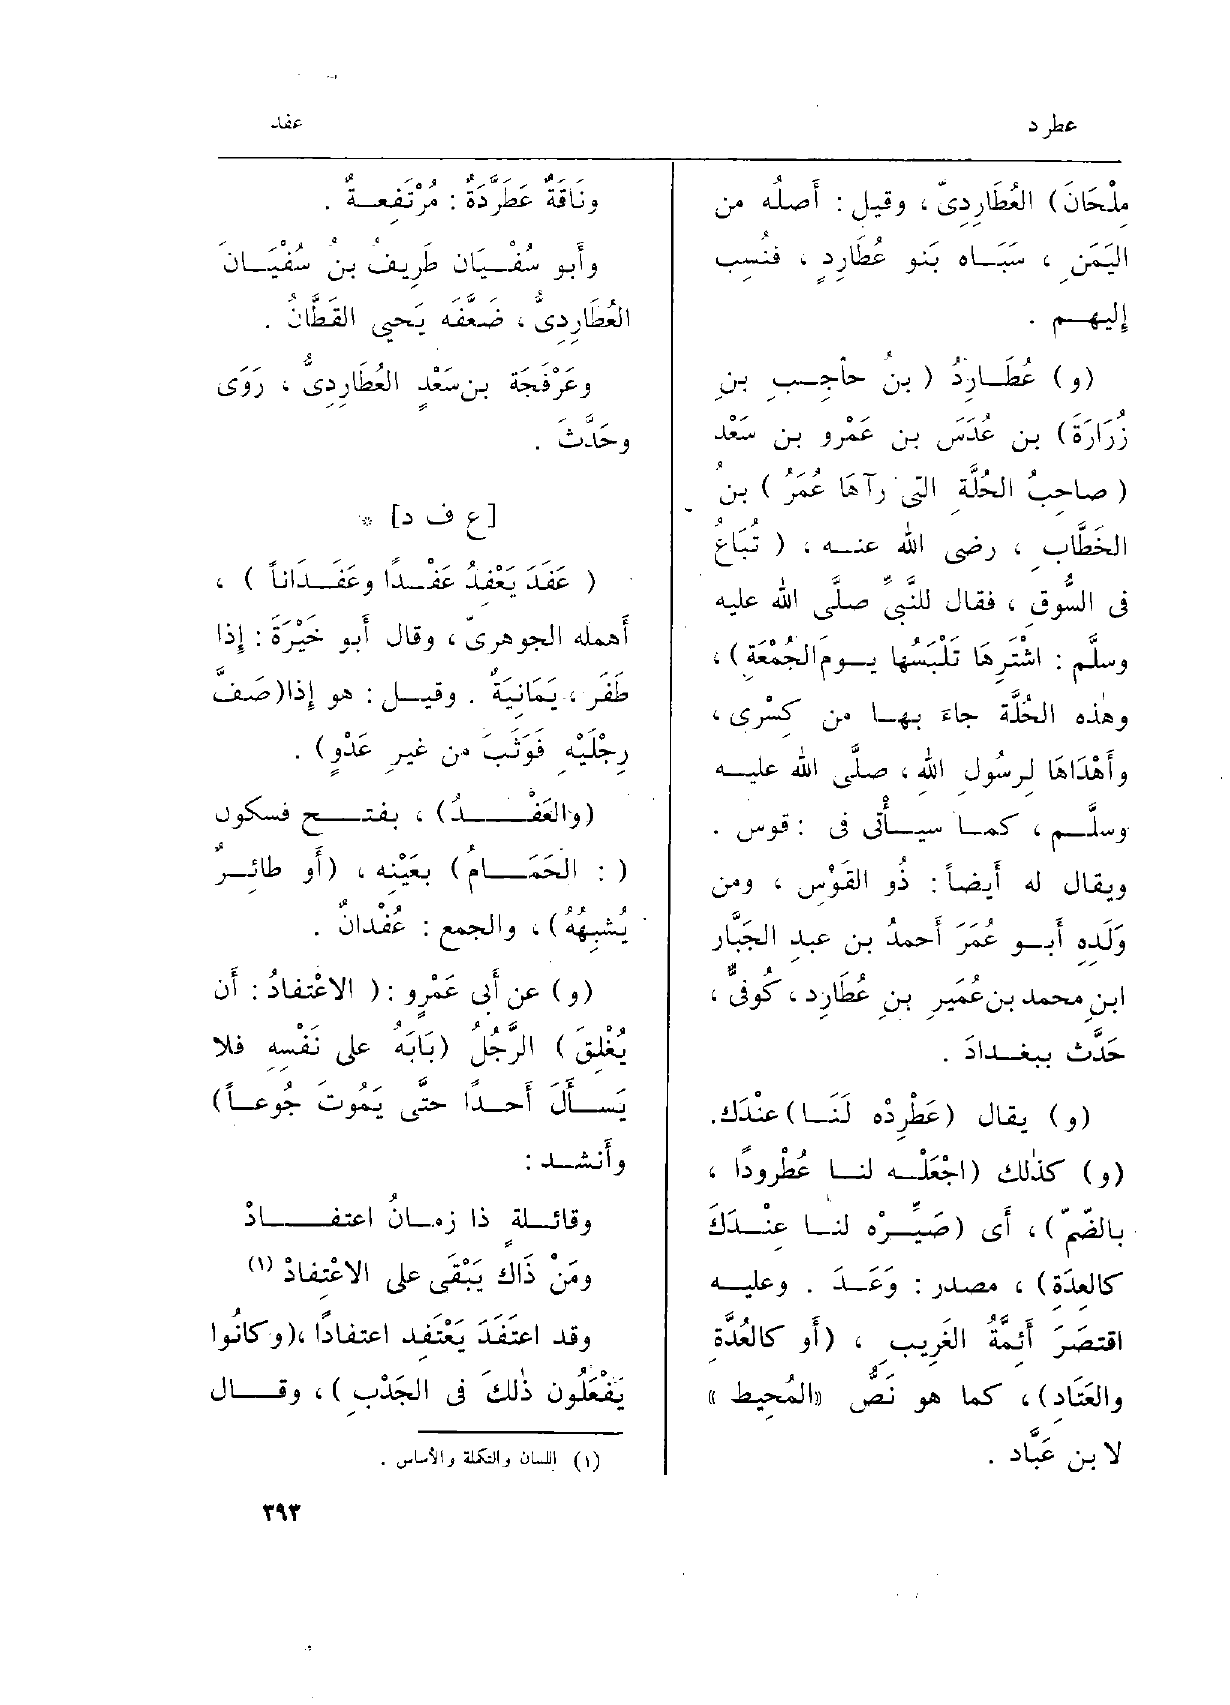 عطرد
عفد
مِلْحَانَ) العُطَارِدِىّ، وقيل: أَصلُه من
اليَمَنِ، سَبَاه بَنو عُطَارِدٍ، فنُسِب
إليهم.
(و) عُطَارِدُ (بنُ حاجِبِ بنِ
زُرَارَةَ) بن عُدَسَ بن عَمْرو بن سَعْد
(صاحِبُ الحُلَّةِ التى رآهَا عُمَرُ) بنُ
الخَطَّابِ، رضى الله عنه، (تُبَاعُ
فى السُّوقِ، فقال للنَّبِىِّ صلَّى الله عليه
وسلَّم: اشْتَرِهَا تَلْبَسُها يومَ الجُمْعَةِ)،
وهٰذه الحُلَّة جاءَ بها من كِسْرى،
وأَهْدَاهَا لِرسُولِ الله، صلَّى الله عليه
وسلَّم، كما سيأْتى فى: قوس.
ويقال له أَيضاً: ذُو القَوْسِ، ومن
وَلَدِهِ أَبو عُمَرَ أَحمدُ بن عبدِ الجَبَّار
ابنِ محمد بن عُمَيرِ بنِ عُطَارِد، كُوفىٌّ،
حَدَّث ببغدادَ.
(و) يقال (عَطْرِدْه لَنَا) عنْدَك.
(و) كذٰلك (اجْعَلْه لنا عُطْرودًا،
بالضّمّ)، أَى (صَيِّرْه لنا عِنْدَكَ
كالعِدَةِ)، مصدر: وَعَدَ. وعليه
اقتصَرَ أَئِمَّةُ الغَرِيبِ، (أَو كالعُدَّةِ
والعَتَادِ)، كما هو نَصُّ «المُحِيط»
لابن عَبَّاد.
ونَاقَةٌ عَطَرَّدَةٌ: مُرْتَفِعةٌ.
وأَبو سُفْيَان طَرِيفُ بنُ سُفْيَانَ
العُطَارِدِىُّ، ضَعَّفَه يَحيى القَطَّانُ.
وعَرْفَجَة بن سَعْدٍ العُطَارِدِىُّ، رَوَى
وحَدَّثَ.
[ع ف د] *
(عَفَدَ يَعْفِدُ عَفْدًا وعَفَدَاناً)،
أَهمله الجوهرىّ، وقال أَبو خَيْرَةَ: إِذا
طَفَر، يَمَانِيَةٌ. وقيل: هو إِذا (صَفَّ
رِجْلَيْهِ فَوَثَبَ من غيرِ عَدْوٍ).
(والعَفْدُ)، بفتح فسكون
(: الحَمَامُ) بعَيْنِه، (أَو طائِرٌ
يُشبِهُهُ)، والجمع: عُفْدانٌ.
(و) عن أَبى عَمْرٍو: (الاعْتِفادُ: أَن
يُغْلِقَ) الرَّجُلُ (بَابَهُ على نَفْسِهِ فلا
يَسأَلَ أَحدًا حتَّى يَمُوتَ جُوعاً)
وأَنشد:
وقائلةٍ ذا زمانُ اعتفادْ
ومَنْ ذَاك يَبْقَى على الاعْتِفادْ (١)
وقد اعتَفَدَ يَعْتَفِد اعتفادًا، (وكانُوا
يَفْعَلُون ذٰلكَ فى الجَدْبِ)، وقال
(١) اللسان والتكملة والأساس.
٣٩٣